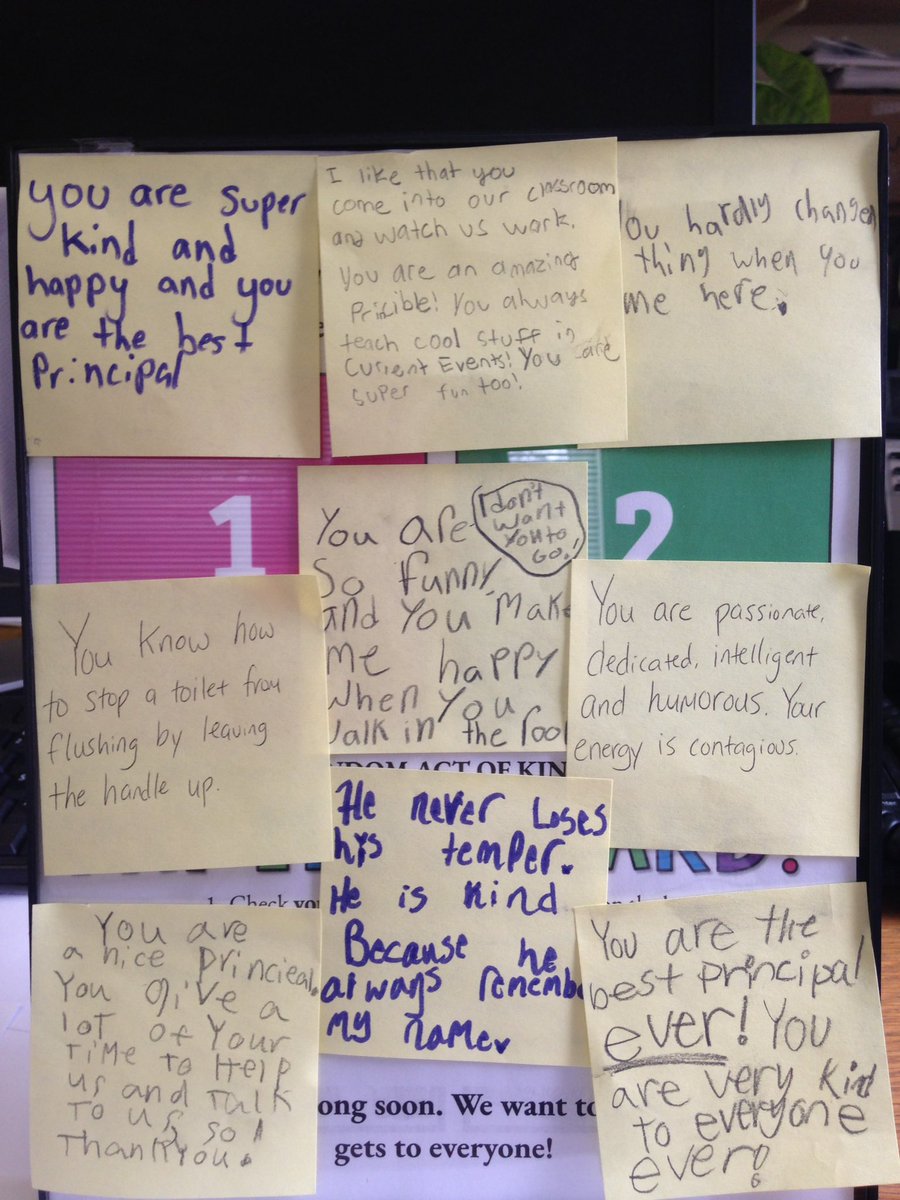 you are super
kind and
happy and you
are the best
Principal
I like that you
come into our classroom
and watch us work.
You are an amazing
Pricible! You always
teach cool stuff in
Current Events! You are
super fun too!
ou hardly change
thing when you
me here.
1
2
You are
So funny,
and You make
me happy
when you
alk in the roo
I don't
want
you to
Go!
You know how
to stop a toilet from
flushing by leaving
the handle up.
You are passionate,
dedicated, intelligent
and humorous. Your
energy is contagious.
DOM ACT OF KIN
ARD!
1. Check you
He never Loses
his temper.
He is kind
Because he
always remembe
my name.
You are
a nice princieal.
You give a
lot of Your
Time to Help
us and Talk
To us, so!
Thankyou!
You are the
best principal
ever! You
are very kind
to everyone
ever!
ong soon. We want to
gets to everyone!